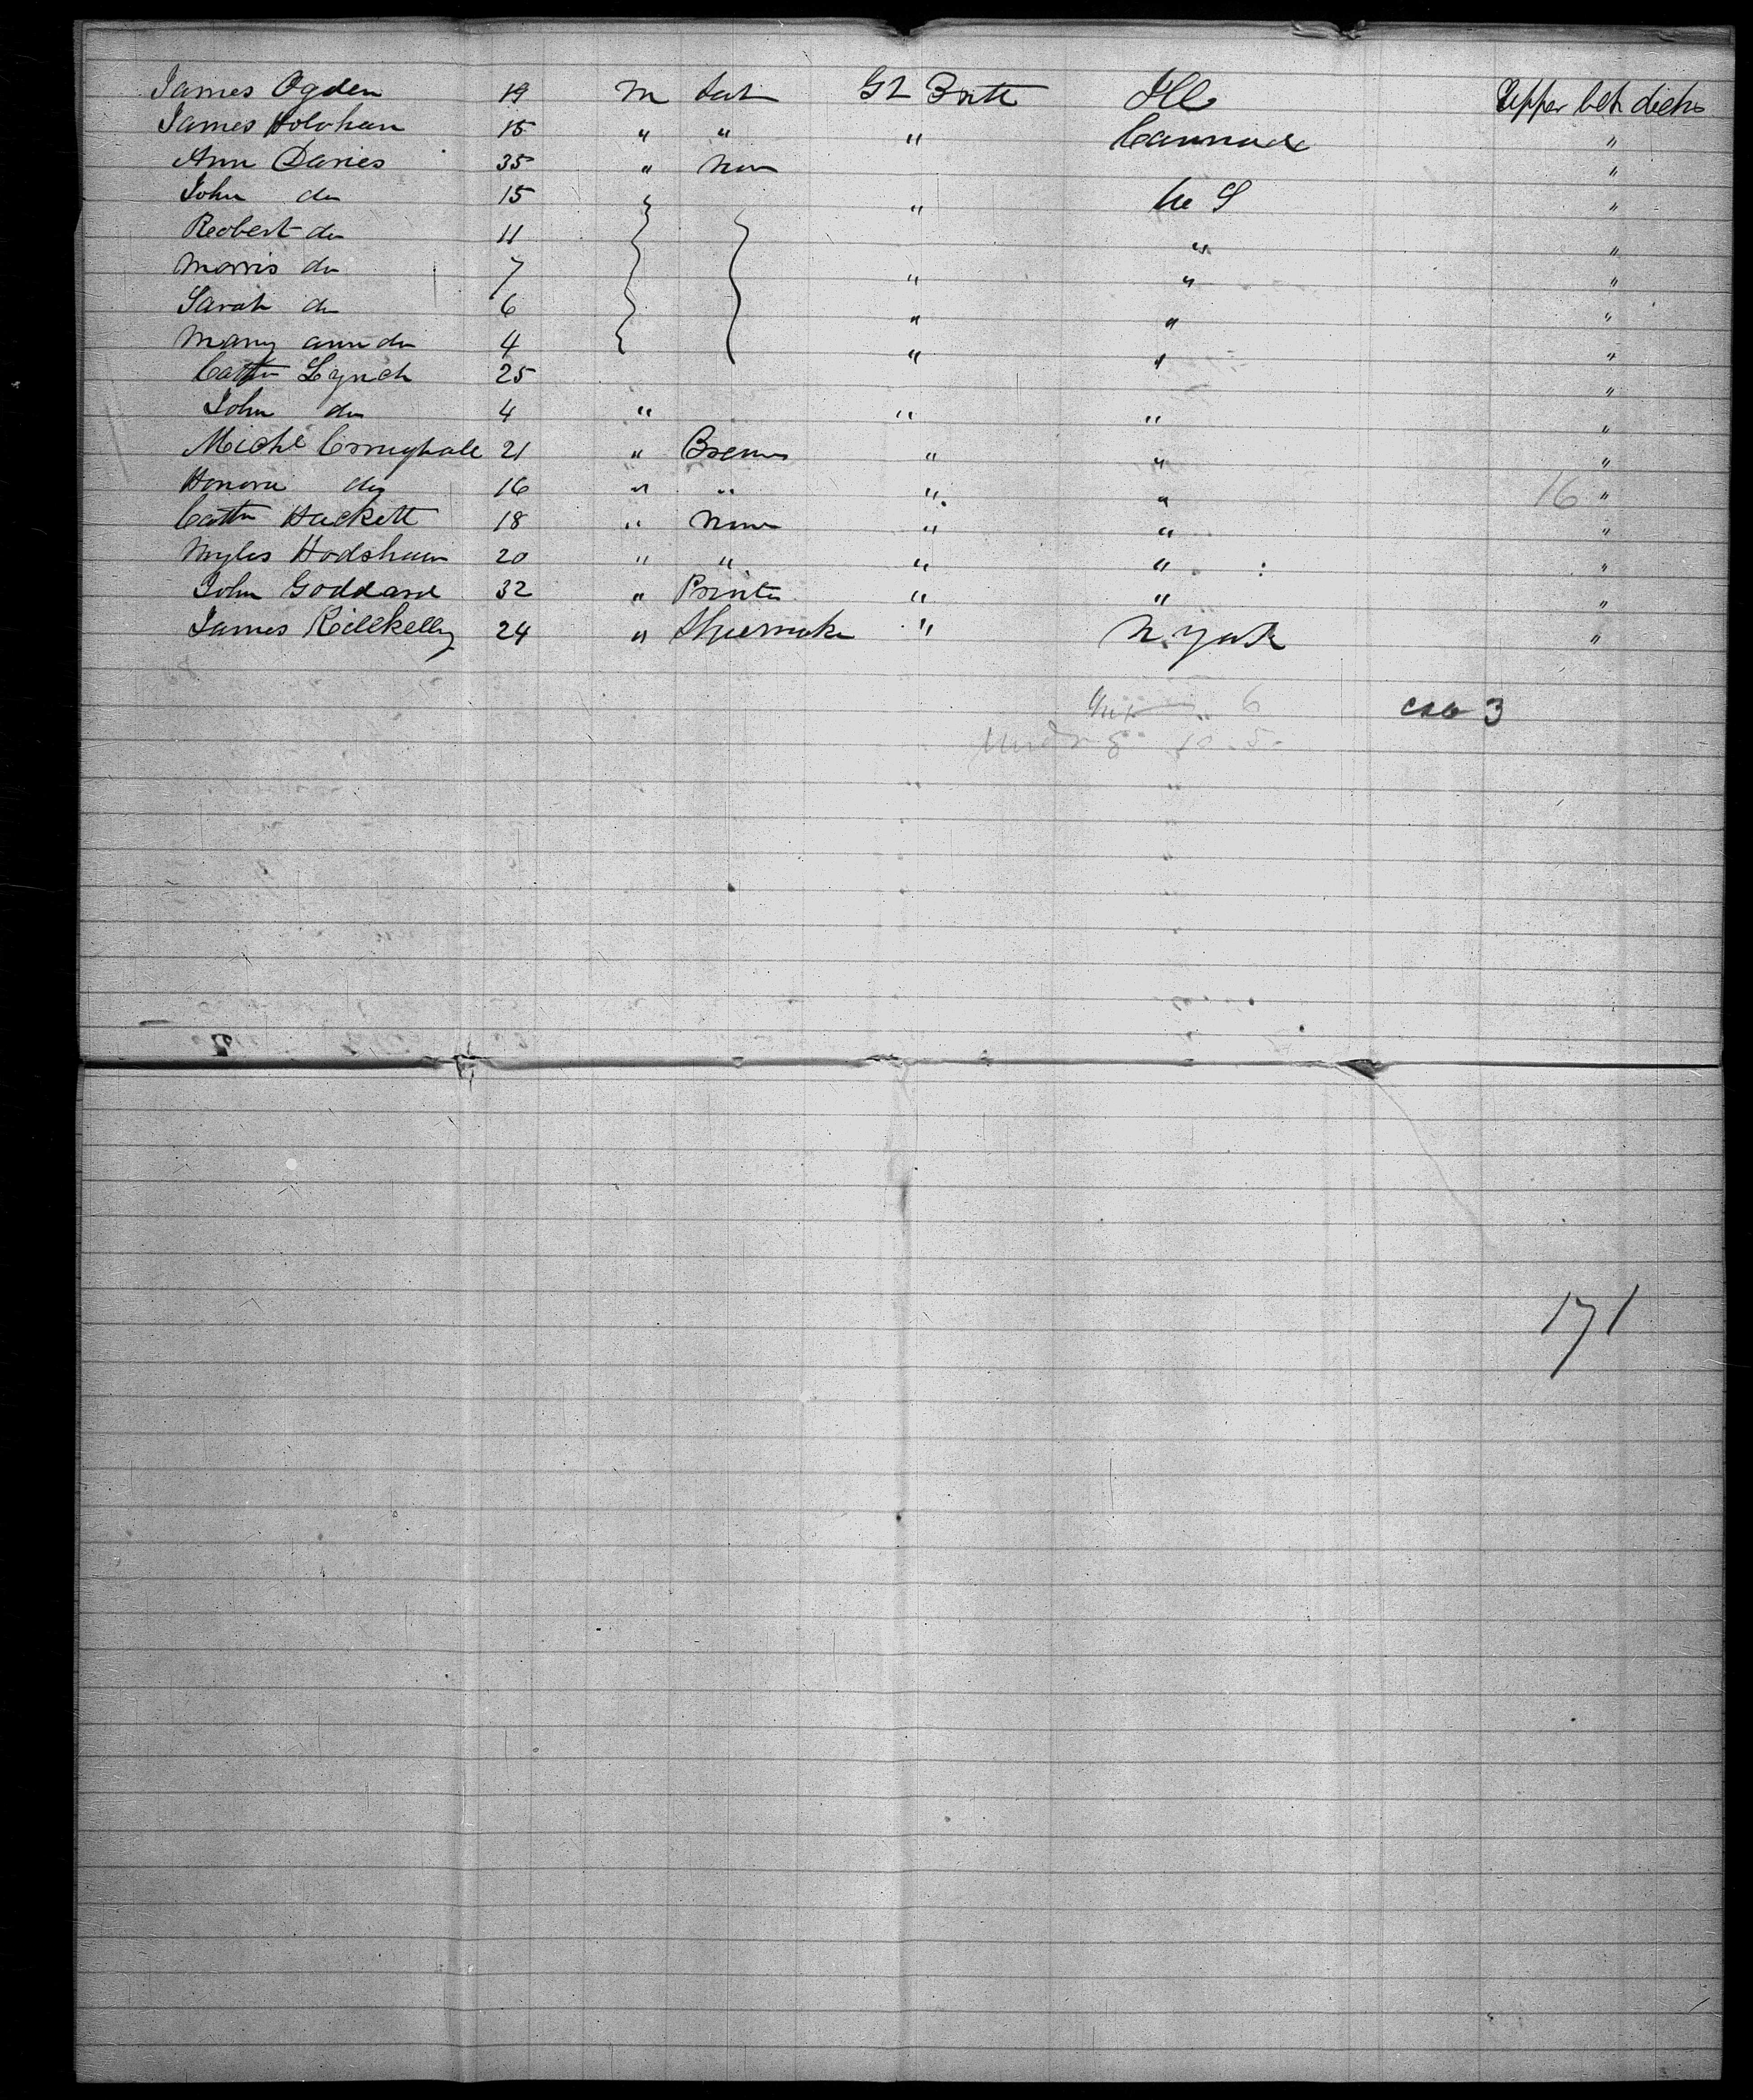 James Ogden 19 M Gt Britt Ill Upper bet decks
James Holohan 15 " " " Cannada "
Ann Davies 35 " Non "
John do 15 " U S "
Reobert do 11 " "
Morris do 7 " " "
Sarah do 6 " " "
Mary ann do 4 " " "
Cathn Lynch 25 "
John do 4 " " " "
Michl 21 " " " "
Honora do 16 " " " " 16 "
Cathn Hackett 18 " None " " "
Myles Hodshun 20 " " " " "
John Goddard 32 " Printer " " "
James Killkelly 24 " Shoemaker " N. York "
6
3
171